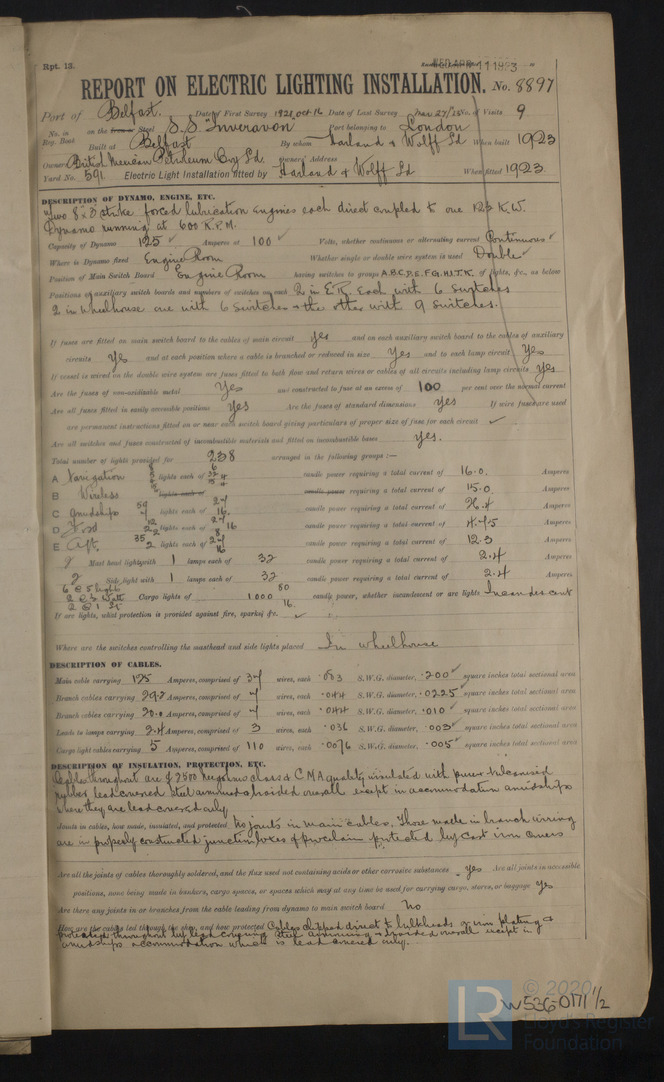 Rpt. 13.
WED APR 11 1923
REPORT ON ELECTRIC LIGHTING INSTALLATION. No. 8897
Port of Belfast. Date of First Survey 1921 Oct 16 Date of Last Survey Mar 27/23 No. of Visits 9
No. in Reg. Book on the Steel S.S. "Inveravon" Port belonging to London
Built at Belfast By whom Harland & Wolff Ld When built 1923
Owners British Mexican Petroleum Coy Ld Owners' Address
Yard No. 591 Electric Light Installation fitted by Harland & Wolff Ld When fitted 1923.
DESCRIPTION OF DYNAMO, ENGINE, ETC.
Two 8 x 5 stroke forced lubrication engines each direct coupled to one 12½ K.W.
Dynamo running at 600 R.P.M.
Capacity of Dynamo 125 Amperes at 100 Volts, whether continuous or alternating current Continuous
Where is Dynamo fixed Engine Room Whether single or double wire system is used Double
Position of Main Switch Board Engine Room having switches to groups A.B.C.D.E.F.G.H.I.J.K. of lights, &c., as below
Positions of auxiliary switch boards and numbers of switches on each 2 in E.R. Each with 6 switches
2 in Wheelhouse one with 6 switches & the other with 9 switches.
If fuses are fitted on main switch board to the cables of main circuit yes and on each auxiliary switch board to the cables of auxiliary
circuits yes and at each position where a cable is branched or reduced in size yes and to each lamp circuit yes
If vessel is wired on the double wire system are fuses fitted to both flow and return wires or cables of all circuits including lamp circuits yes
Are the fuses of non-oxidizable metal yes and constructed to fuse at an excess of 100 per cent over the normal current
Are all fuses fitted in easily accessible positions yes Are the fuses of standard dimensions yes If wire fuses are used
are permanent instructions fitted on or near each switch board giving particulars of proper size of fuse for each circuit ✓
Are all switches and fuses constructed of incombustible materials and fitted on incombustible bases yes.
Total number of lights provided for 238 arranged in the following groups :—
A Navigation lights each of candle power requiring a total current of 16.0. Amperes
B Wireless lights each of candle power requiring a total current of 15.0 Amperes
C Amidships 59 lights each of 16. candle power requiring a total current of 26.4 Amperes
D lights each of 16 candle power requiring a total current of 4.75 Amperes
E Aft. 35 2 lights each of 16 candle power requiring a total current of 12.3 Amperes
2 Mast head light with 1 lamps each of 32 candle power requiring a total current of 2.4 Amperes
2 Side light with 1 lamps each of 32 candle power requiring a total current of 2.4 Amperes
6 @ 5 light
2 @ ½ Watt Cargo lights of 1000 candle power, whether incandescent or arc lights Incandescent
2 @ 1 Lt 16.
If arc lights, what protection is provided against fire, sparks, &c. ✓
Where are the switches controlling the masthead and side lights placed In wheelhouse
DESCRIPTION OF CABLES.
Main cable carrying 125 Amperes, comprised of 37 wires, each .083 S.W.G. diameter, .200 square inches total sectional area
Branch cables carrying 29.2 Amperes, comprised of 7 wires, each .064 S.W.G. diameter, .0225 square inches total sectional area
Branch cables carrying 20.0 Amperes, comprised of 7 wires, each .044 S.W.G. diameter, .010 square inches total sectional area
Leads to lamps carrying 2.4 Amperes, comprised of 3 wires, each .036 S.W.G. diameter, .003 square inches total sectional area
Cargo light cables carrying 5 Amperes, comprised of 110 wires, each .0076 S.W.G. diameter, .005 square inches total sectional area
DESCRIPTION OF INSULATION, PROTECTION, ETC.
Cables throughout are of 2500 megohms class & C.M.A. quality insulated with pure & vulcanised
rubber lead covered steel armoured & braided overall except in accommodation amidships
where they are lead covered only
Joints in cables, how made, insulated, and protected No joints in main cables. Those made in branch wiring
are in properly constructed junction boxes of porcelain protected by cast iron covers
Are all the joints of cables thoroughly soldered, and the flux used not containing acids or other corrosive substances yes Are all joints in accessible
positions, none being made in bunkers, cargo spaces, or spaces which may at any time be used for carrying cargo, stores, or baggage yes
Are there any joints in or branches from the cable leading from dynamo to main switch board no
How are the cables led through the ship, and how protected Cables clipped direct to bulkheads or iron plating &
protected throughout by lead covering steel armouring & braided overall except in
amidships accommodation which is lead covered only.
© 2020
LR Lloyd's Register
Foundation
W536-0171 1/2